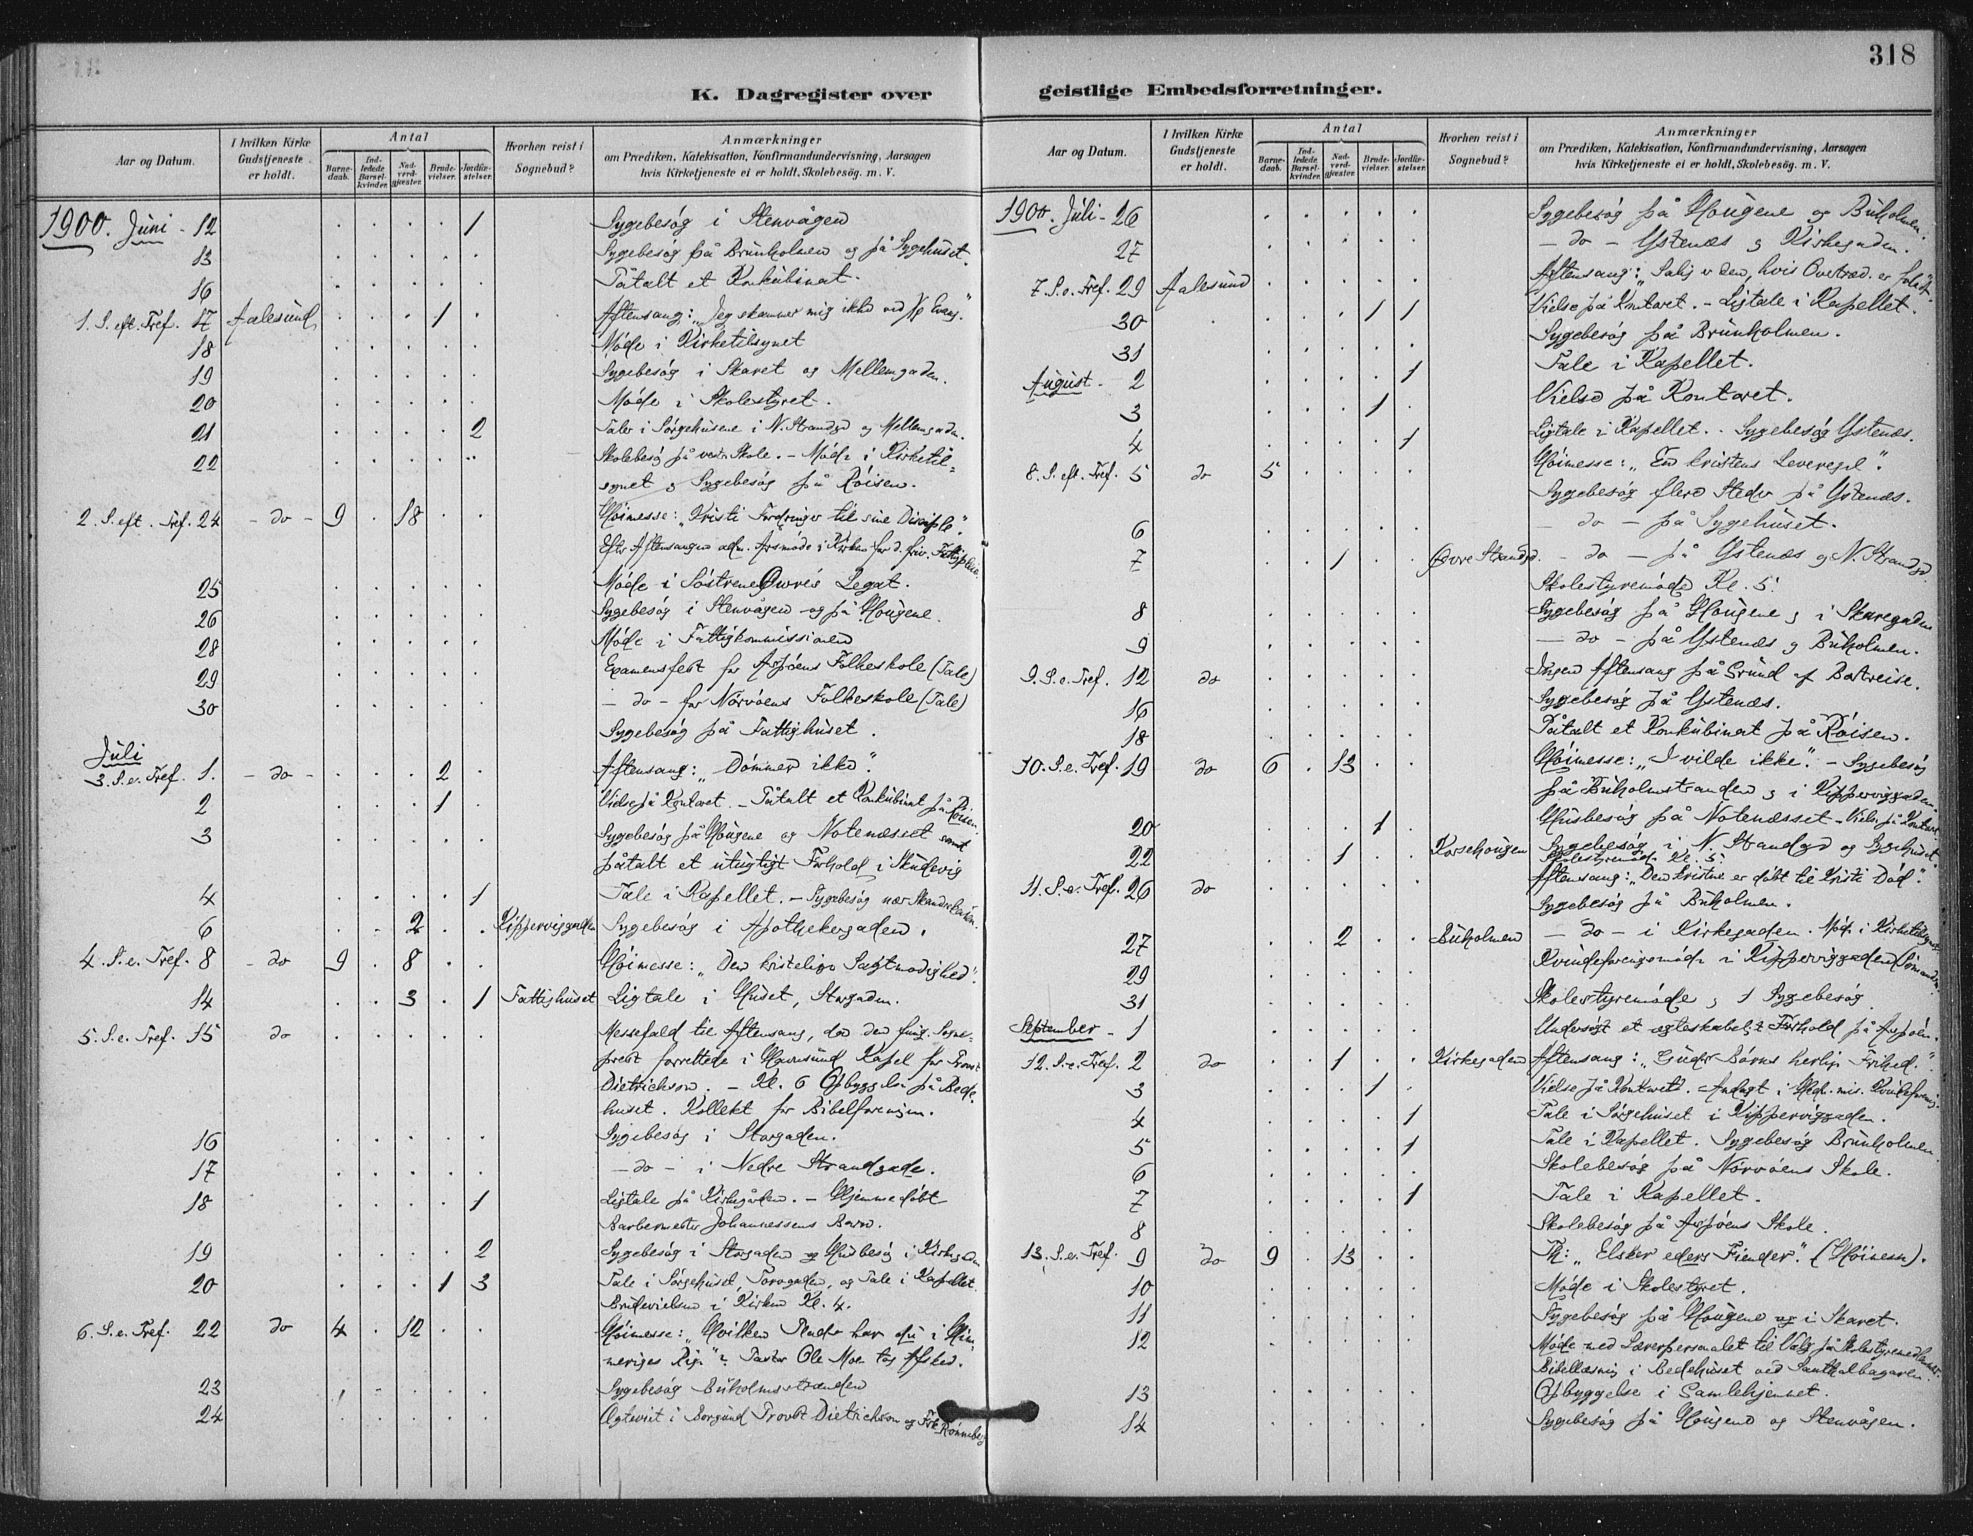 318
K. Dagregister over
geistlige Embedsforretninger.
Aar og Datum.
I hvilken Kirke Gudstjeneste er holdt.
Antal
Barne-daab.
Ind-ledede Barsel-kvinder.
Nad-verd-gjæster.
Brude-vielser.
Jordfæ-stelser.
Hvorhen reist i Sognebud?
Anmærkninger
om Prædiken, Katekisation, Konfirmandundervisning, Aarsagen
hvis Kirketjeneste ei er holdt, Skolebesög. m. V.
1900. Juni - 12 1 Sygebesøg i Stenvågen
13 Sygebesøg på Brunholmen og på Sygehuset.
16 Påtalt et Konkubinat.
1. S. eft. Tref. 17 Aalesund 1 Aftensang: "Jeg skammer mig ikke ved X Evang."
18 Møde i Kirketilsynet
19 Sygebesøg i Skaret og Mellemgaden.
20 Møde i Skolestyret.
21 2 Taler i Sørgehusene i N. Strandgd og Mellemgadn.
22 Skolebesøg på vestr. Skole. - Møde i Kirketil-
synet og Sygebesøg på Røisen.
2. S. eft. Tref. 24 - do - 9 18 Høimesse: "Kristi Fordringer til sine Disciple."
Efter Aftensangen alm. Årsmøde i Kirken for d. friv. Fattigpleie.
25 Møde i Søstrene Owrés Legat.
26 Sygebesøg i Stenvågen og på Hougene.
28 Møde i Fattigkommissionen
29 Examensfest for Aspøens Folkeskole (Tale)
30 - do - for Nørvøens Folkeskole (Tale)
Sygebesøg på Fattighuset.
Juli
3. S. e. Tref. 1. - do - 2 Aftensang: "Dømmer ikke".
2 1 Vielse på Kontoret. - Påtalt et Konkubinat på Røisen.
3 Sygebesøg på Hougene og Notenæsset samt
påtalt et utugtigt Forhold i Skudevig
4 1 Tale i Kapellet. - Sygebesøg nær
6 2 Kipperviggaden Sygebesøg i Apothekergaden.
4. S. e. Tref. 8 - do 9 8 Høimesse: "Den kristelige Sagtmodighed".
14 3 1 Fattighuset Ligtale i Huset, Storgaden.
5. S. e. Tref. 15 do Messefald til Aftensang, da den fung. Sogne-
prest forrettede i Havnsund Kapel for Provst
Dietrichson. - Kl. 6 Opbyggelse på Bede-
huset. Kollekt for Bibelforeningen.
16 Sygebesøg i Storgaden.
17 - do - i Nedre Strandgade.
18 1 Ligtale på Kirkegården. - Hjemmedøbt
Barbermester Johannessens Barn.
19 2 Sygebesøg i Storgaden og Husbesøg i Kirkegaden
20 1 3 Tale i Sørgehuset Torvgaden, og Tale i Kapellet.
Brudevielsen i Kirken Kl. 4.
6. S. e. Tref. 22 do 4 12 Høimesse: "Hvilken Plads har du i Him-
meriges Rige"? Pastor Ole Moe tog Afsked.
23 Sygebesøg Buholmsstranden
24 Ægteviet i Borgund Provst Dietrichson og Frk. Rønneberg
Aar og Datum.
I hvilken Kirke Gudstjeneste er holdt.
Antal
Barne-daab.
Ind-ledede Barsel-kvinder.
Nad-verd-gjæster.
Brude-vielser.
Jordfæ-stelser.
Hvorhen reist i Sognebud?
Anmærkninger
om Prædiken, Katekisation, Konfirmandundervisning, Aarsagen
hvis Kirketjeneste ei er holdt, Skolebesög. m. V.
1900. Juli - 26 Sygebesøg på Hougene og Buholmen.
27 - do - Ystenæs og Kirkegaden.
7. S. e. Tref. 29 Aalesund Aftensang: "Salig er den, hvis Overtræd. er forladt".
30 1 1 Vielse på Kontoret. - Ligtale i Kapellet.
31 Sygebesøg på Brunholmen.
August. 2 1 Tale i Kapellet.
3 1 Vielse på Kontoret.
4 1 Ligtale i Kapellet. - Sygebesøg Ystenæs.
8. S. eft. Tref. 5 do 5 Høimesse: "En kristens Leveregel".
Sygebesøg flere Steder på Ystenæs.
6 - do - på Sygehuset.
7 1 Øvre Strandgd. - do - på Ystenæs og N. Strandgd.
Skolestyremøde Kl. 5.
8 Sygebesøg på Hougene og i Skaregaden
9 - do - på Ystenæs og Buholmen.
9. S. e. Tref. 12 do Ingen Aftensang på Grund af Bortreise.
16 Sygebesøg på Ystenæs.
18 Påtalt et Konkubinat på Røisen.
10. S. e. Tref. 19 do 6 13 Høimesse: "I vilde ikke". - Sygebesøg
på Buholmstranden og i Kipperviggaden.
20 1 Husbesøg på Notenæsset - Vielse på Kontoret.
22 1 Korsehougen Sygebesøg i N. Strandgd og Sygehuset.
Skolestyremøde Kl. 5.
11. S. e. Tref. 26 do Aftensang: "Den kristne er døbt til Kristi Død".
Sygebesøg på Buholmen.
27 2 Buholmen - do - i Kirkegaden. Møde i Kirketilsynet
29 Kvindeforeningsmøde i Kipperviggaden
31 Skolestyremøde og 1 Sygebesøg
September - 1 Undersøgt et ægteskabeligt Forhold på Aspøen.
12. S. e. Tref. 2 do 1 Kirkegaden Aftensang: "Guds Børns herlige Frihed."
3 1 Vielse på Kontoret. Andagt i Hedn. mis. Kvindeforening.
4 1 Tale i Sørgehuset i Kipperviggaden.
5 1 Tale i Kapellet. Sygebesøg Brunholmen
6 Skolebesøg på Nørvøens Skole.
7 1 Tale i Kapellet.
8 Skolebesøg på Aspøens Skole.
13. S. e. Tref. 9 do 9 13 Th: "Elsker eders Fiender". (Høimesse).
10 Møde i Skolestyret.
11 Sygebesøg på Hougene og i Skaret.
12 Møde med Lærerpersonalet til Valg på Skolestyremedlemmer.
Bibellæsning i Bedehuset ved
13 Opbyggelse i Samlehjemmet.
14 Sygebesøg på Hougene og Stenvågen.